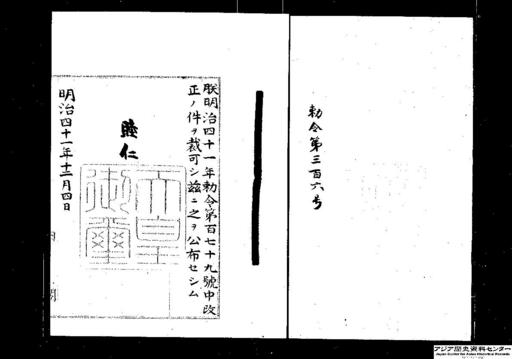 勅令第三百六号
朕明治四十一年勅令第百七十九號中改
正ノ件ヲ裁可シ茲ニ之ヲ公布セシム
睦仁
天皇
御璽
明治四十一年十二月四日
内
アジア歴史資料センター
Japan Center for Asian Historical Records